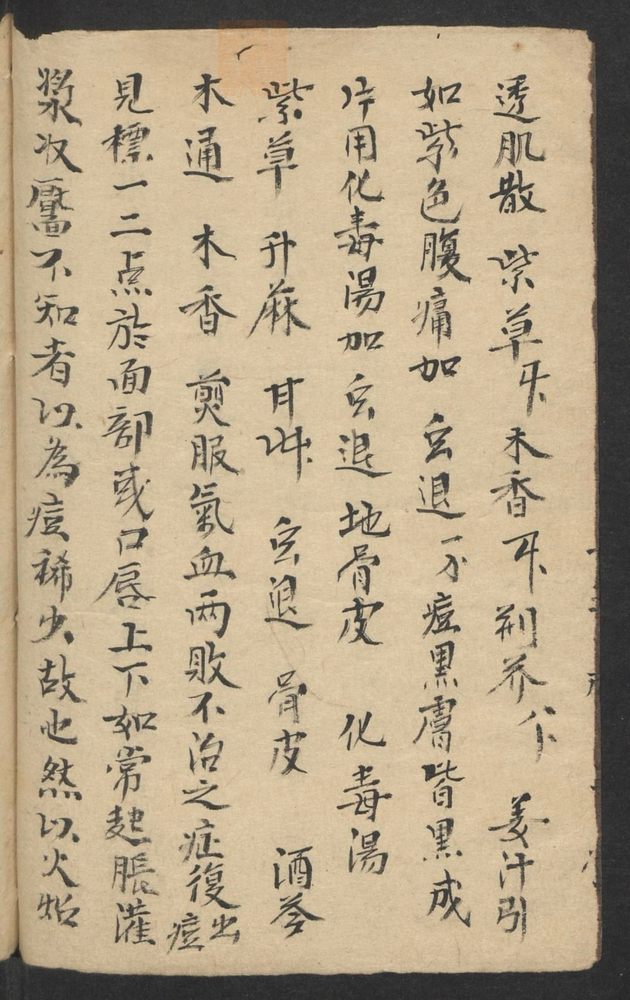 透肌散 紫草 木香 荆芥 姜汁引
如紫色腹痛加 玄退 一分痘黑膚皆黑成
片用化毒湯加玄退 地骨皮 化毒湯
紫草 升麻 甘艸 玄退 骨皮 酒芩
木通 木香 煎服氣血两敗不治之症復出痘
見標一二点於面部或口唇上下如常起脹灌
漿收靨不知者以為痘稀少故也然以火照